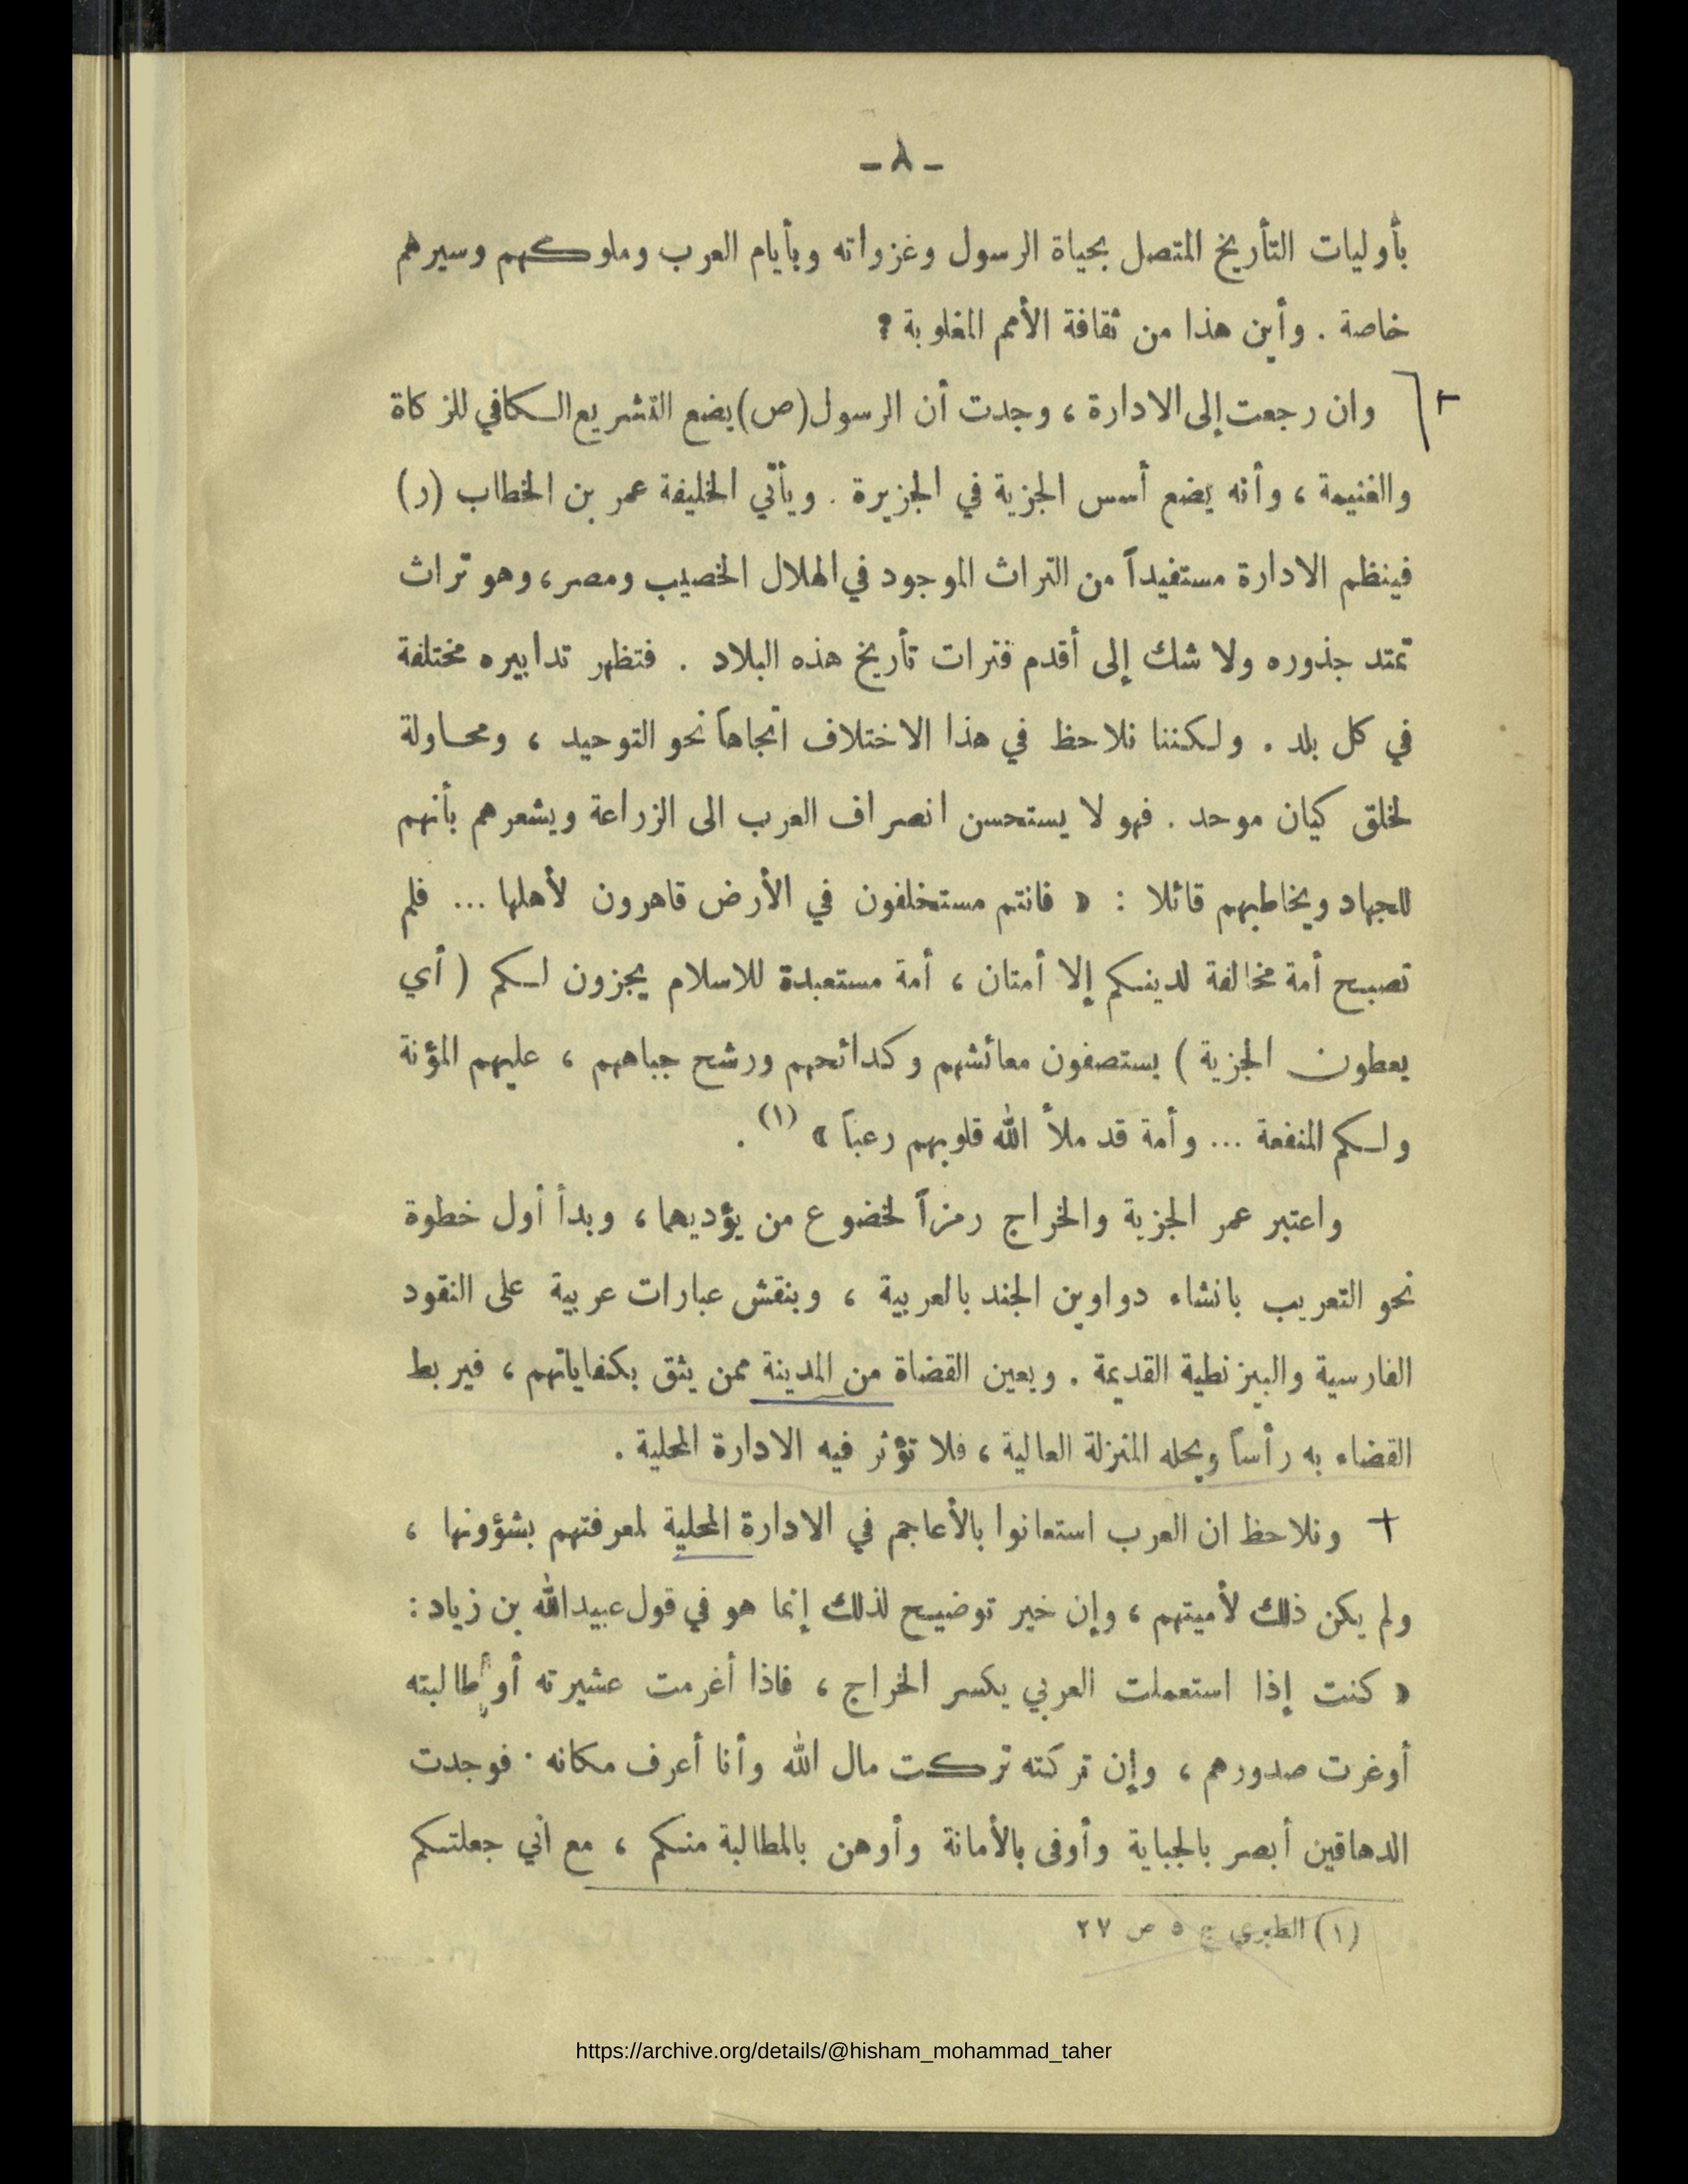 - ٨ -
بأوليات التأريخ المتصل بحياة الرسول وغزواته وبأيام العرب وملوكهم وسيرهم
خاصة . وأين هذا من ثقافة الأمم المغلوبة ؟
وان رجعت إلى الادارة ، وجدت أن الرسول (ص) يضع التشريع الكافي للزكاة
والغنيمة ، وأنه يضع أسس الجزية في الجزيرة . ويأتي الخليفة عمر بن الخطاب (ر)
فينظم الادارة مستفيداً من التراث الموجود في الهلال الخصيب ومصر ، وهو تراث
تمتد جذوره ولا شك إلى أقدم فترات تأريخ هذه البلاد . فتظهر تدابيره مختلفة
في كل بلد . ولكننا نلاحظ في هذا الاختلاف اتجاهاً نحو التوحيد ، ومحاولة
لخلق كيان موحد . فهو لا يستحسن انصراف العرب الى الزراعة ويشعرهم بأنهم
للجهاد ويخاطبهم قائلا : « فانتم مستخلفون في الأرض قاهرون لأهلها ... فلم
تصبح أمة مخالفة لدينكم إلا أمتان ، أمة مستعبدة للاسلام يجزون لكم ( أي
يعطون الجزية ) يستصفون معائشهم وكدائحهم ورشح جباههم ، عليهم المؤنة
ولكم المنفعة ... وأمة قد ملأ الله قلوبهم رعباً » (١) .
واعتبر عمر الجزية والخراج رمزاً لخضوع من يؤديهما ، وبدأ أول خطوة
نحو التعريب بانشاء دواوين الجند بالعربية ، وبنقش عبارات عربية على النقود
الفارسية والبيزنطية القديمة . ويعين القضاة من المدينة ممن يثق بكفاياتهم ، فيربط
القضاء به رأساً ويحله المنزلة العالية ، فلا تؤثر فيه الادارة المحلية .
+ ونلاحظ ان العرب استعانوا بالأعاجم في الادارة المحلية لمعرفتهم بشؤونها ،
ولم يكن ذلك لأميتهم ، وإن خير توضيح لذلك إنما هو في قول عبيدالله بن زياد :
« كنت إذا استعملت العربي يكسر الخراج ، فاذا أغرمت عشيرته أو طالبته
أوغرت صدورهم ، وإن تركته تركت مال الله وأنا أعرف مكانه . فوجدت
الدهاقين أبصر بالجباية وأوفى بالأمانة وأوهن بالمطالبة منكم ، مع اني جعلتكم
(١) الطبري ج ٥ ص ٢٧
https://archive.org/details/@hisham_mohammad_taher